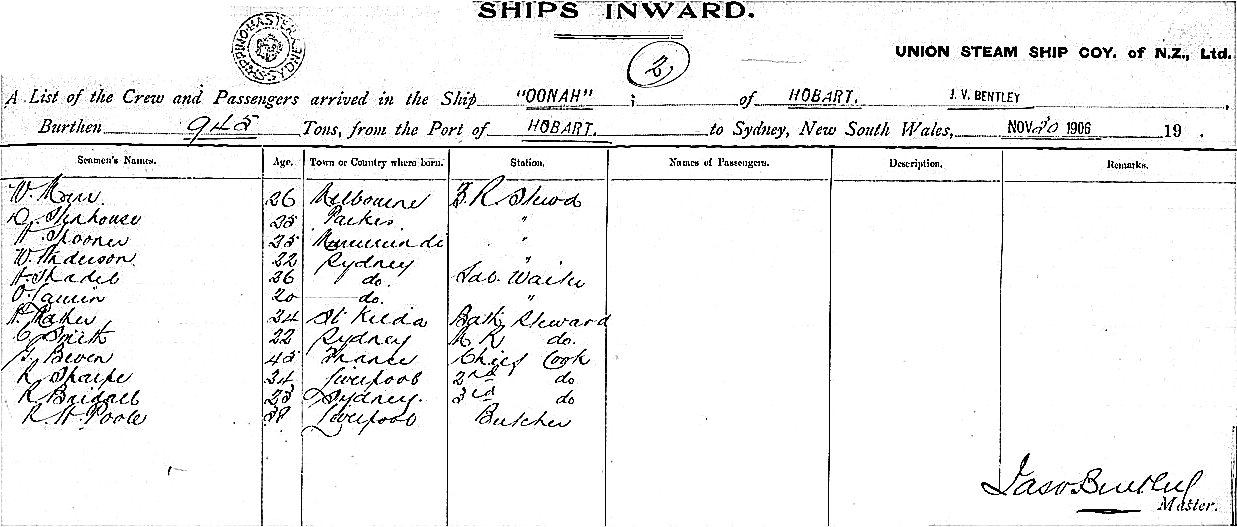 SHIPS INWARD.
SHIPPING MASTER SYDNEY
2
UNION STEAM SHIP COY. of N.Z., Ltd.
A List of the Crew and Passengers arrived in the Ship "OONAH" ; of HOBART. J. V. BENTLEY ,
Burthen 945 Tons, from the Port of HOBART. to Sydney, New South Wales, NOV 30 1906 19 .
Seamen's Names. Age. Town or Country where born. Station. Names of Passengers. Description. Remarks.
W. 26 Melbourne
D. Stenhouse Parkes "
Spooner 25 Murrurundi "
W. Anderson 22 Sydney "
do.
20 do. "
St Kilda Bath Steward
22 Sydney do.
G. Beven 45 France Chief Cook
R Sharpe 24 Liverpool 2nd do
R 23 Sydney. 3rd do
R. H. Poole 38 Liverpool Butcher
Bentley
Master.